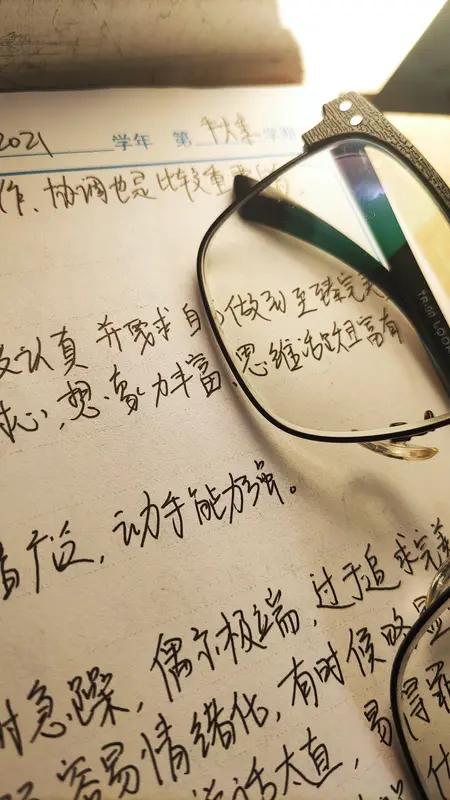 2021 学年 第 学期
作、协调也是比较重要
认真 并要求自 做到至臻完美
心,想象力丰富,思维活跃且富有
广泛,动手能力强。
时急躁,偶尔极端,过于追求完美
容易情绪化,有时候略显
说话太直,易得罪